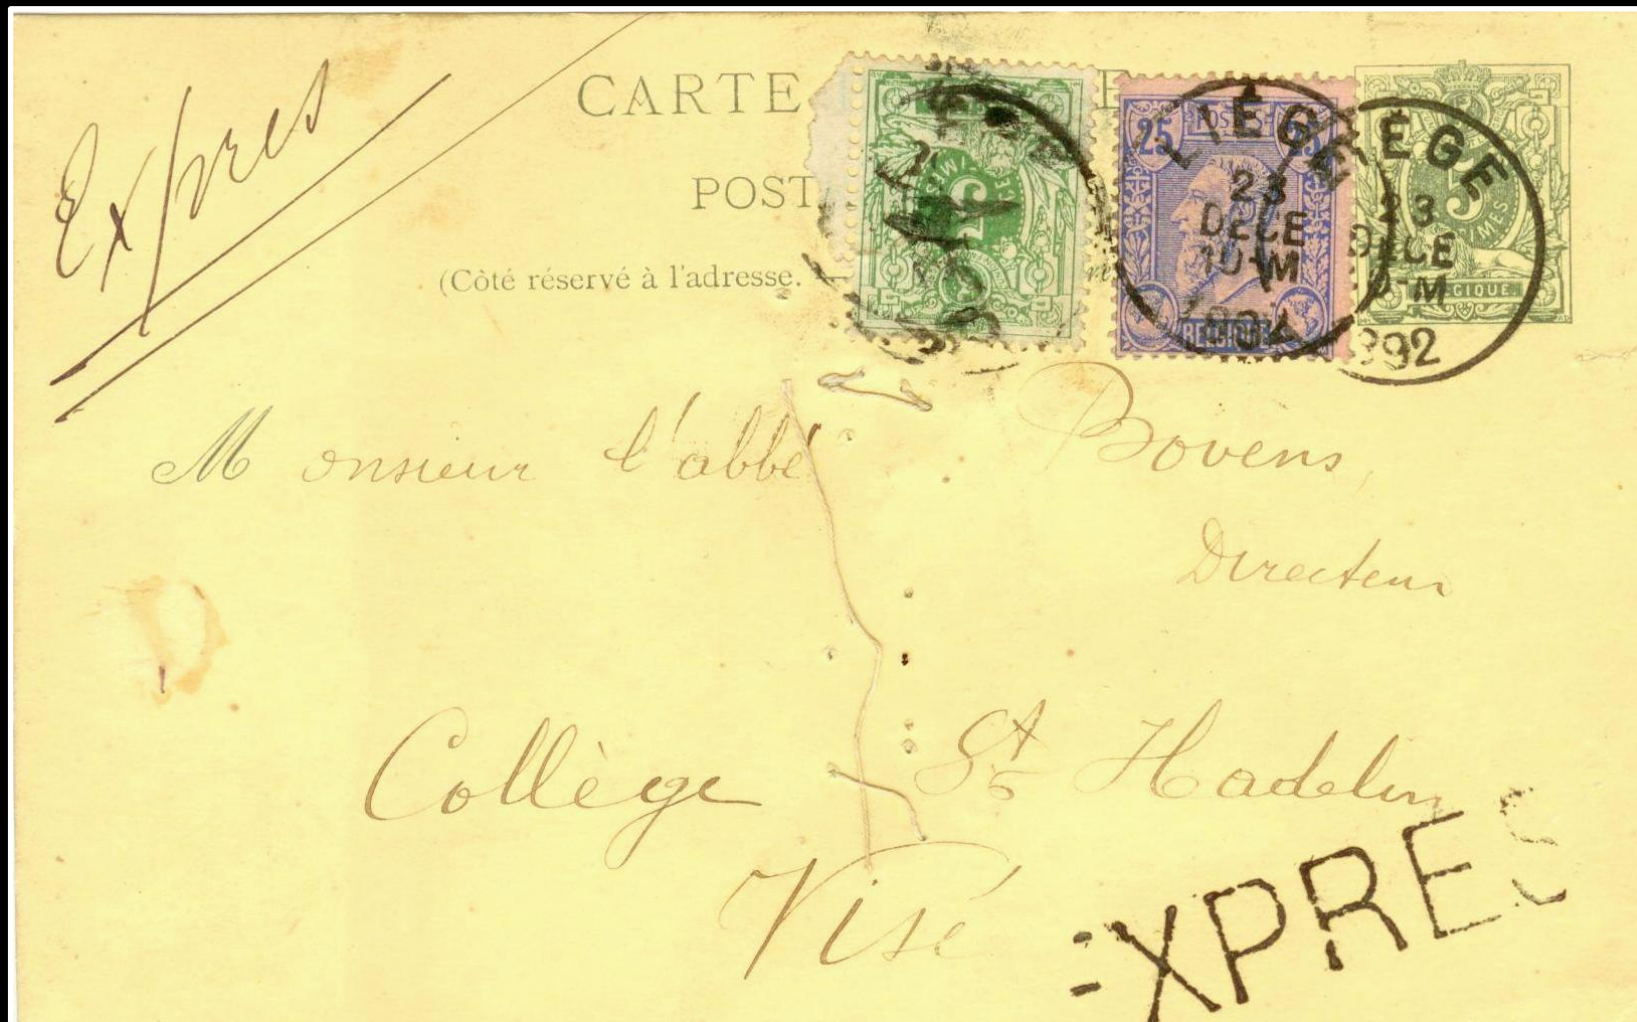 Expres
CARTE
POST
(Côté réservé à l'adresse.
25 POSTES
BELGIQUE
LIÉGE
23
DECE
10-M
1892
LIÉGE
23
DECE
10-M
1892
5
BELGIQUE
Monsieur l'abbé Bovens,
Directeur
Collège St Hadelin
Visé
EXPRES